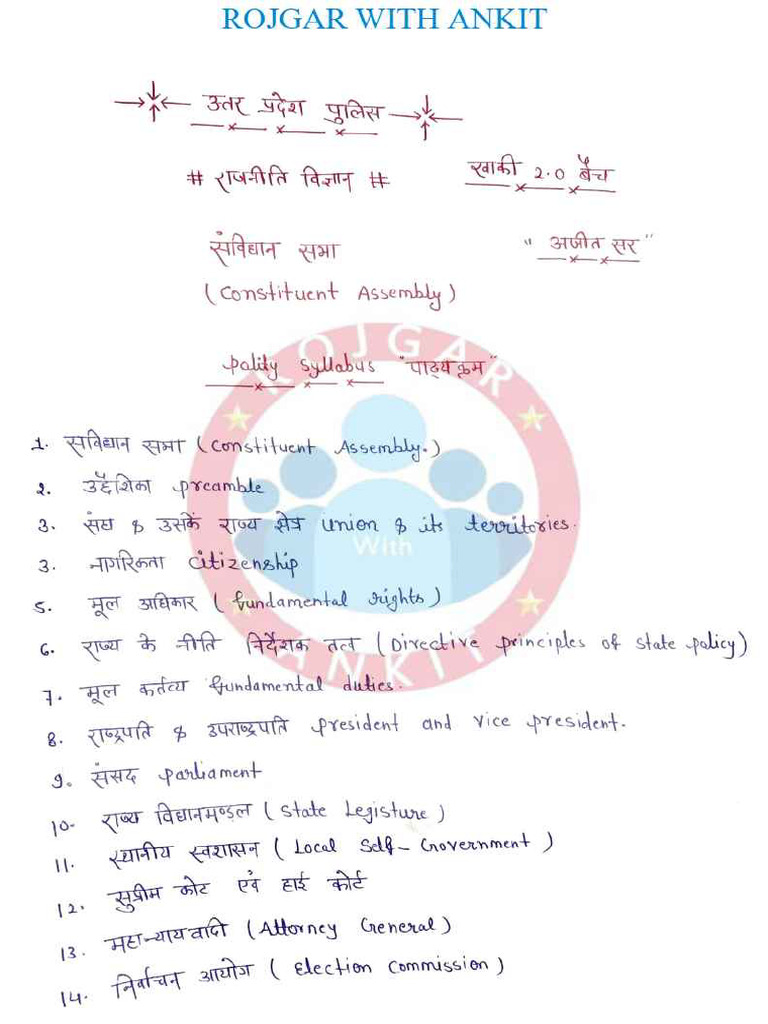 ROJGAR WITH ANKIT
उत्तर प्रदेश पुलिस
# राजनीति विज्ञान #
खाकी 2.0 बैच
संविधान सभा
" अजीत सर "
(Constituent Assembly)
ROJGAR
Polity Syllabus "पाठ्यक्रम"
1. सविधान सभा (Constituent Assembly.)
2. उद्देशिका Preamble
3. संघ & उसकें राज्य क्षेत्र union & its territories.
With
3. नागरिकता Citizenship
5. मूल अधिकार (fundamental rights)
6. राज्य के नीति निर्देशक तत्व (Directive principles of state policy)
ANKIT
7. मूल कर्तव्य fundamental duties.
8. राष्ट्रपति & उपराष्ट्रपति president and vice president.
9. संसद parliament
10. राज्य विधानमण्डल (State Legisture)
11. स्थानीय स्वशासन (Local Self-Government)
12. सुप्रीम कोट एवं हाई कोर्ट
13. महान्यायवादी (Attorney General)
14. निर्वाचन आयोग (Election Commission)